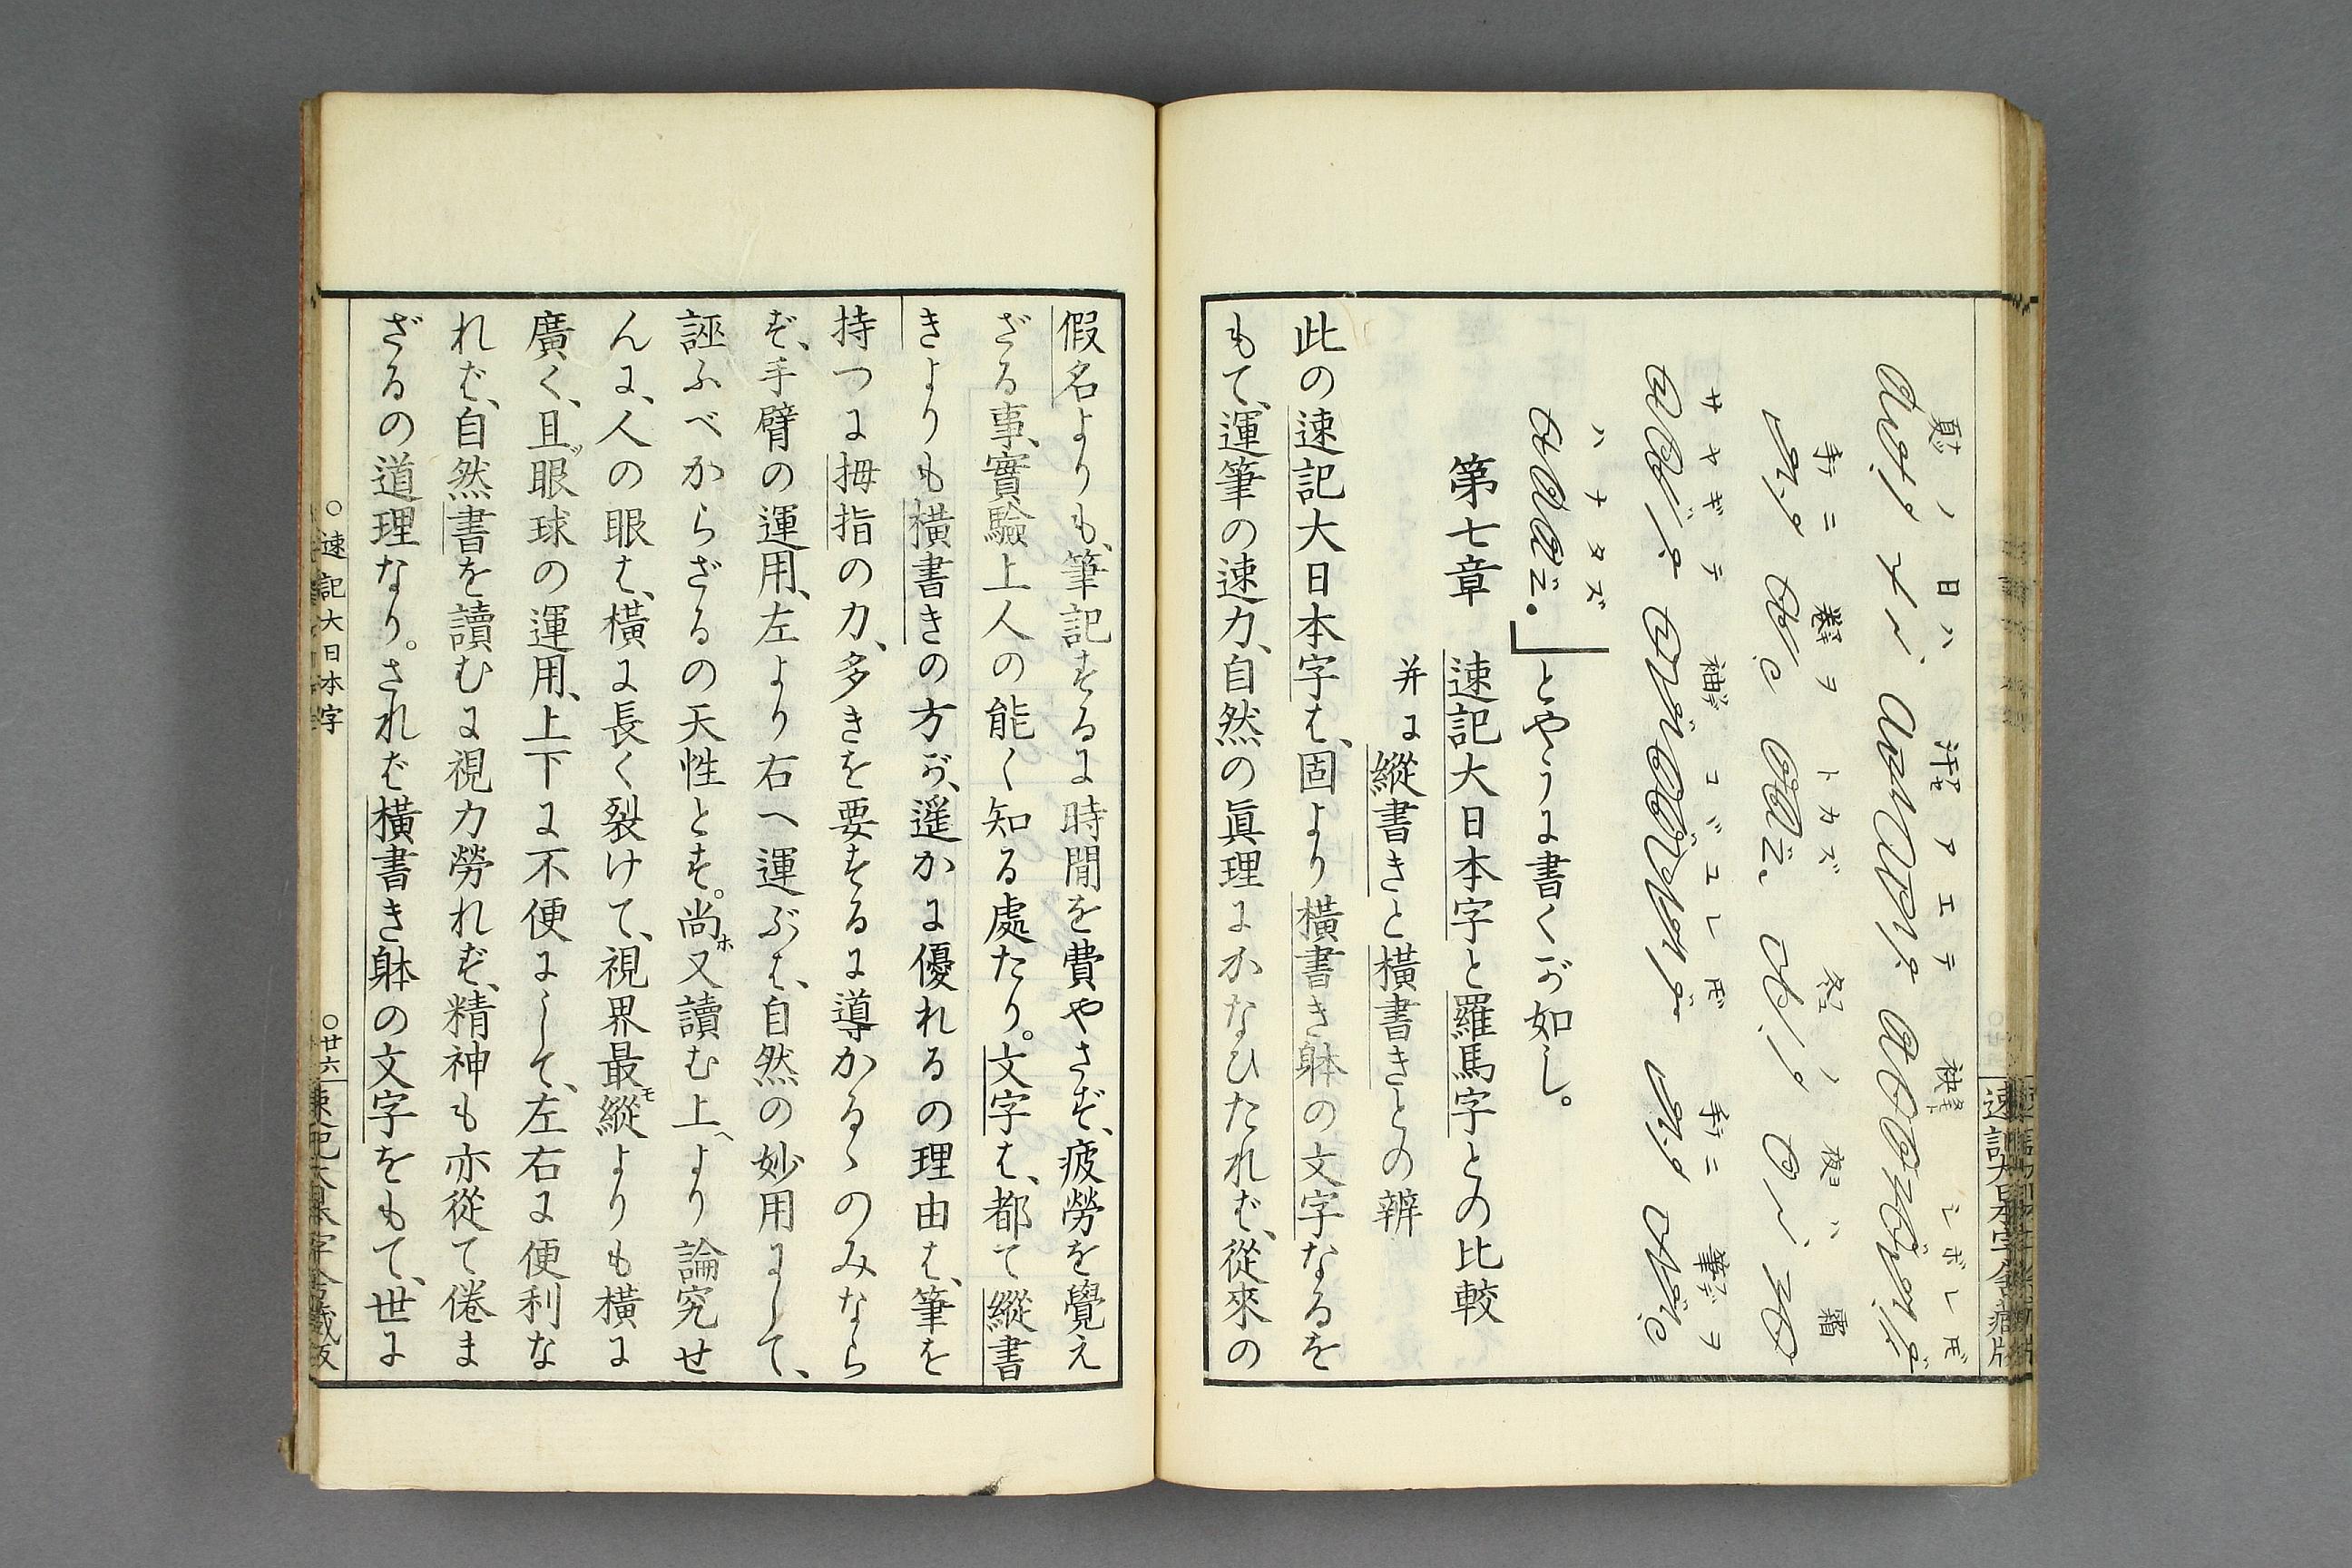 ノ 日ハ 汗 アエテ 袂 シボレ𪜈
手ニ 卷ヲ トカズ 冬ノ 夜ハ 霜
サヤギテ 袖 コヾユレ𪜈 手ニ 筆ヲ
ハナタズ
」とやうに書くが如し。
第七章 速記大日本字と羅馬字との比較
并に縱書きと橫書きとの辨
此の速記大日本字は、固より橫書き躰の文字なるを
もて、運筆の速力、自然の眞理にかなひたれば、從來の
假名よりも、筆記するに時間を費やさず、疲勞を覺え
ざる事、實驗上人の能く知る處たり。文字は、都て縱書
きよりも橫書きの方が、遥かに優れるの理由は、筆を
持つに拇指の力、多きを要するに導かるゝのみなら
ず、手臂の運用、左より右へ運ぶは、自然の妙用にして、
誣ふべからざるの天性とす。尚ホ又讀む上ヘより論究せ
んに、人の眼は、橫に長く裂けて、視界最モ縱よりも橫に
廣く、且ツ眼球の運用、上下に不便にして、左右に便利な
れば、自然書を讀むに視力勞れず、精神も亦從て倦ま
ざるの道理なり。されば橫書き躰の文字をもて、世に
○速記大日本字 ○廿六